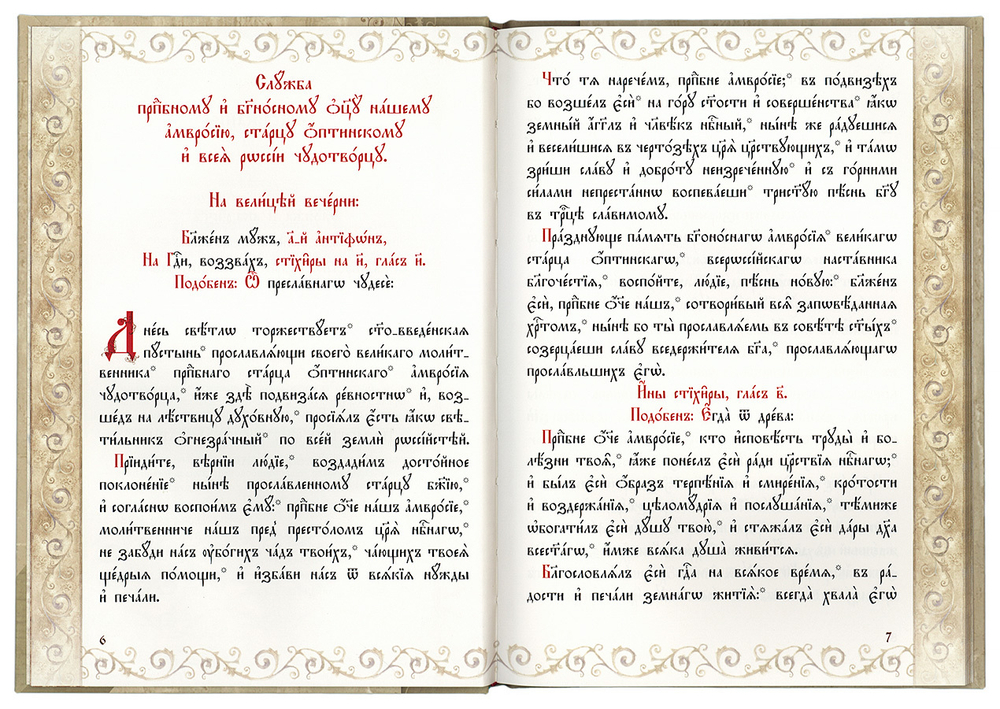 Слꙋ́жба
прпⷣбномꙋ и҆ бг҃оно́сномꙋ ѻ҆ц҃ꙋ̀ на́шемꙋ
а҆мвро́сїю, ста́рцꙋ ѻ҆́птинскомꙋ
и҆ всеѧ̀ рѡссі́и чꙋдотво́рцꙋ.
На вели́цѣй вече́рни:
Бл҃же́нъ мꙋ́жъ, а҃-й а҆нтїфѡ́нъ,
На Гдⷭ҇и, воззва́хъ, стїхи̑ры на и҃, гла́съ и҃.
Подо́бенъ: Ѽ пресла́внагѡ чꙋдесѐ:
Дне́сь свѣ́тлѡ торжествꙋ́етъ* ст҃о-введе́нская
пꙋ́стынь* прославлѧ́ющи своего̀ вели́каго моли́т-
венника* прпⷣбнаго ста́рца ѻ҆́птинскаго* а҆мвро́сїѧ
чꙋдотво́рца,* и҆́же здѣ̀ подвиза́сѧ ре́вностнѡ* и҆, воз-
ше́дъ на лѣ́ствицꙋ дꙋхо́внꙋю,* просїѧ́лъ є҆́сть ꙗ҆́кѡ свѣ-
ти́льникъ ѻ҆гнезра́чный* по все́й землѝ рѡссі́йстѣй.
Прїиди́те, вѣ́рнїи лю́дїе,* воздади́мъ досто́йное
поклоне́нїе* ны́нѣ просла́вленномꙋ ста́рцꙋ бж҃їю,*
и҆ согла́снѡ воспои́мъ є҆мꙋ̀:* прпⷣбне ѻ҆́ч҃е на́шъ а҆мвро́сїе,*
моли́твенниче на́шъ пред̾ престо́ломъ цр҃ѧ̀ нбⷭ҇нагѡ,*
не забꙋ́ди на́съ ᲂу҆бо́гихъ ча́дъ твои́хъ,* ча́ющихъ твоеѧ̀
ще́дрыѧ по́мощи,* и҆ и҆зба́ви на́съ ѿ всѧ́кїѧ нꙋ́жды
и҆ печа́ли.
6
Что́ тѧ нарече́мъ, прпⷣбне а҆мвро́сїе;* въ по́двизѣхъ
бо возше́лъ є҆сѝ* на го́рꙋ ст҃ости и҆ соверше́нства* ꙗ҆́кѡ
земны́й а҆́гг҃лъ и҆ чл҃вѣ́къ нбⷭ҇ный,* ны́нѣ же ра́дꙋешисѧ
и҆ весели́шисѧ въ черто́зѣхъ цр҃ѧ̀ црⷭ҇твꙋющихъ,* и҆ та́мѡ
зри́ши сла́вꙋ и҆ добро́тꙋ неизрече́ннꙋю* и҆ съ го́рними
си́лами непреста́ннѡ воспева́еши* трист҃ꙋ́ю пѣ́снь бг҃ꙋ
въ трⷪ҇цѣ сла́вимомꙋ.
Пра́зднꙋюще па́мѧть бг҃оно́снагѡ а҆мвро́сїѧ* вели́кагѡ
ста́рца ѻ҆́птинскагѡ,* всерѡссі́йскагѡ наста́вника
благоче́стїѧ,* воспо́йте, лю́дїе, пѣ́снь но́вꙋю:* бл҃же́нъ
є҆сѝ, прпⷣбне ѻ҆́ч҃е на́шъ,* сотвори́вый всѧ̑ запѡвѣ́данная
хрⷭ҇то́мъ,* ны́нѣ бо ты̀ прославлѧ́емь въ совѣ́тѣ ст҃ы́хъ*
созерца́еши сла́вꙋ вседержи́телѧ бг҃а,* прославлѧ́ющагѡ
просла́вльшихъ є҆го̀.
И҆́ны стїхи̑ры, гла́съ в҃.
Подо́бенъ: Є҆гда̀ ѿ дре́ва:
Прпⷣбне ѻ҆́ч҃е а҆мвро́сїе,* кто̀ и҆сповѣ́сть трꙋды̀ и҆ бо-
лѣ́зни твоѧ̑,* ꙗ҆̀же поне́слъ є҆сѝ ра́ди црⷭ҇твїѧ нбⷭ҇нагѡ;*
и҆ бы́лъ є҆сѝ ѻ҆́бразъ терпѣ́нїѧ и҆ смире́нїѧ,* кро́тости
и҆ воздержа́нїѧ,* цѣломꙋ́дрїѧ и҆ послꙋша́нїѧ,* тѣ́мже
ѡ҆богати́лъ є҆сѝ дꙋ́шꙋ твою̀,* и҆ стѧжа́лъ є҆сѝ да́ры дх҃а
всест҃а́гѡ,* и҆́мже всѧ́ка дꙋша̀ живи́тсѧ.
Благословлѧ́лъ є҆сѝ гдⷭ҇а на всѧ́кое вре́мѧ,* въ ра́-
дости и҆ печа́ли земна́гѡ житїѧ̀:* всегда̀ хвала̀ є҆гѡ̀
7